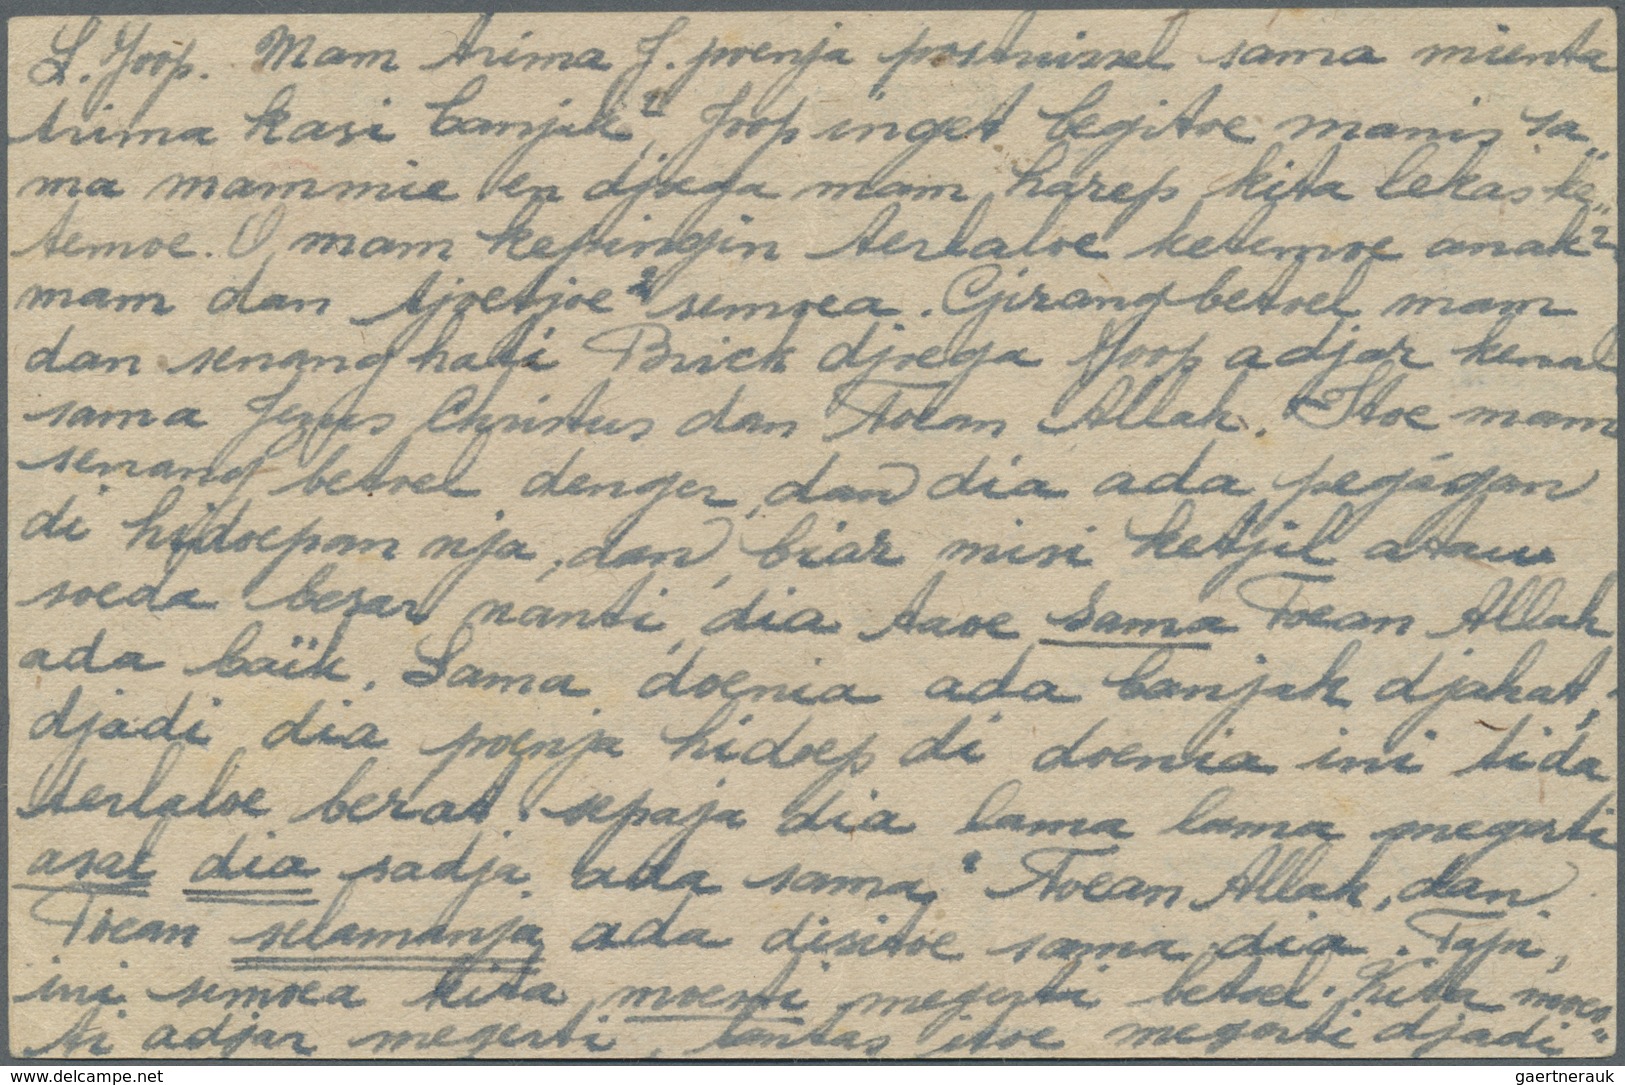 L. Joop. Mam trima J. poenja postwissel sama mienta
trima kasi banjak², Joop inget begitoe manis sa„
ma mammie en djoega mam harep kita lekas ke„
temoe. O, mam kepingin terlaloe ketemoe anak²
mam dan tjoetjoe² semoea. Girang betoel mam
dan senang hati Brick djoega Joop adjar kenal
sama Jezus Christus dan Toean Allah. Itoe mam
senang betoel denger, dan dia ada pegágan
di hidoepan nja, dan, biar misi ketjil atau
soeda besar nanti, dia taoe sama Toean Allah
ada baïk. Sama doenia ada banjak djahat,
djadi dia poenja hidoep di doenia ini tida
terlaloe berat sepaja dia lama lama megerti
asal dia sadja ada sama Toean Allah, dan
Toean selamanja ada disitoe sama dia. Tapi,
ini semoea kita moesti megerti betoel. Kita moes„
ti adjar megerti, lantas itoe megerti djadi
gaertnerauk